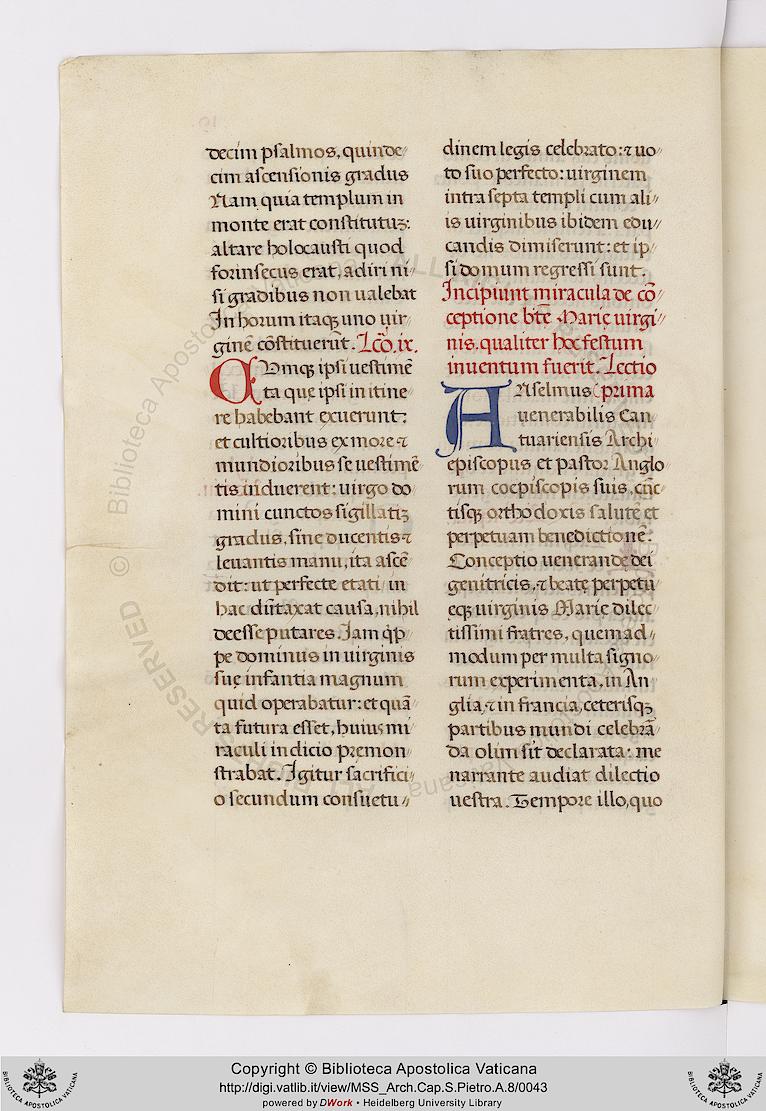 decim psalmos, quinde//
cim ascensionis gradus
Nam quia templum in
monte erat constitutuꝫ:
altare holocausti quod
forinsecus erat, adiri ni//
si gradibus non ualebat
In horum itaqꝫ uno uir//
ginē cōstituerūt. Lc̄o. ix.
CUmqꝫ ipsi uestimē
ta que ipsi in itine//
re habebant exuerunt:
et cultioribus ex more ⁊
mundioribus se uestimē//
tis induerent: uirgo do//
mini cunctos sigillatiꝫ
gradus, sine ducentis ⁊
leuantis manu, ita ascē//
dit: ut perfecte etati in
hac dūtaxat causa, nihil
deesse putares. Iam q̇p//
pe dominus in uirginis
suę infantia magnum
quid operabatur: et quā//
ta futura esset, huius mi
raculi indicio premon//
strabat. Igitur sacrifici//
o secundum consuetu//
dinem legis celebrato: ⁊ uo//
to suo perfecto: uirginem
intra septa templi cum ali//
is uirginibus ibidem edu//
candis dimiserunt: et ip//
si domum regressi sunt.
Incipiunt miracula de cō//
ceptione btē Marię uirgi//
nis, qualiter hoc festum
inuentum fuerit. Lectio
ANselmus prima
uenerabilis Can
tuariensis Archi//
episcopus et pastor Anglo
rum coepiscopis suis, cūc//
tisqꝫ orthodoxis salutē et
perpetuam benedictionē.
Conceptio uenerande dei
genitricis, ⁊ beatę perpetu//
ęqꝫ uirginis Marię dilec//
tissimi fratres, quemad//
modum per multa signo//
rum experimenta, in An//
glia, ⁊ in francia, ceterisqꝫ
partibus mundi celebrā//
da olim sit declarata: me
narrante audiat dilectio
uestra. Tempore illo, quo
© Biblioteca Apostolica Vaticana
ALL RIGHTS RESERVED
Copyright © Biblioteca Apostolica Vaticana
http://digi.vatlib.it/view/MSS_Arch.Cap.S.Pietro.A.8/0043
powered by DWork • Heidelberg University Library
BIBLIOTECA APOSTOLICA VATICANA
BIBLIOTECA APOSTOLICA VATICANA